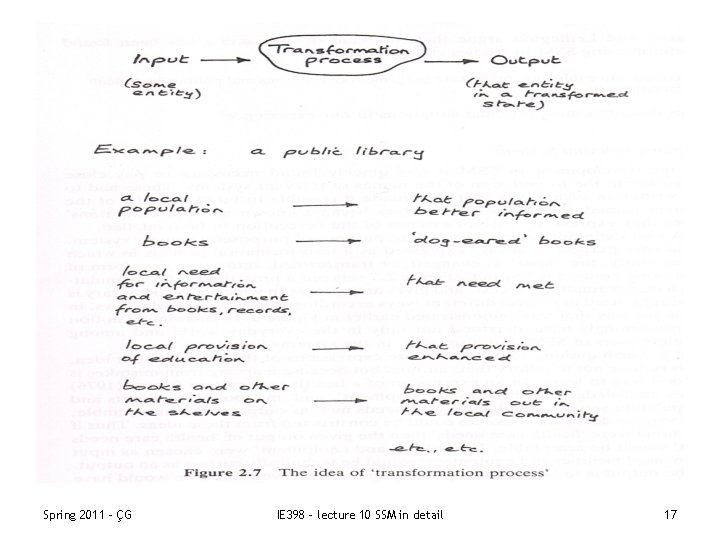 Input → Transformation process → Output
(some entity) (that entity in a transformed state)
Example: a public library
a local population → that population better informed
books → 'dog-eared' books
local need for information and entertainment from books, records, etc. → that need met
local provision of education → that provision enhanced
books and other materials on the shelves → books and other materials out in the local community
etc., etc.
Figure 2.7 The idea of 'transformation process'
Spring 2011 - ÇG IE398 - lecture 10 SSM in detail 17